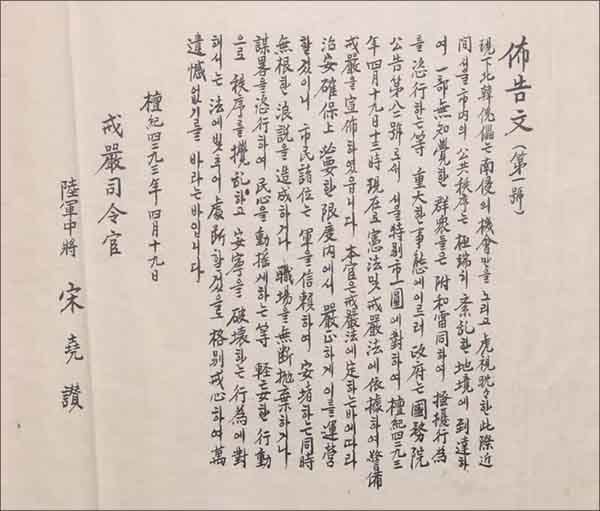 佈告文 (第一號)
現下北韓傀儡는 南侵의 機會만을 노리고 虎視眈々한 此際 近
間 서울市內의 公共秩序는 極端히 紊乱한 地境에 到達하
여 一部 無知覺한 群衆들은 附和雷同하여 搔擾行為
를 恣行하는等 重大한 事態에 이르러 政府는 國務院
公告 第八二號로서 서울特別市一圓에 對하여 檀紀四二九三
年四月十九日十三時 現在로 憲法및 戒嚴法에 依據하여 警備
戒嚴을 宣佈하였읍니다 本官은 戒嚴法에 定하는바에 따라
治安確保上 必要한 限度內에서 嚴正하게 이를 運營
할것이니 市民諸位는 軍을 信賴하여 安堵하는同時
無根한 浪說을 造成하거나 職場을 無断抛棄하거나
謀略을 恣行하여 民心을 動搖세하는等 輕妄한 行動
으로 秩序를 攪乱하고 安寧을 破壞하는 行為에 對
해서는 法에 빛우어 處断할것을 格別 戒心하여 萬
遺憾없기를 바라는바입니다
檀紀四二九三年 四月十九日
戒嚴司令官
陸軍中將 宋堯讚